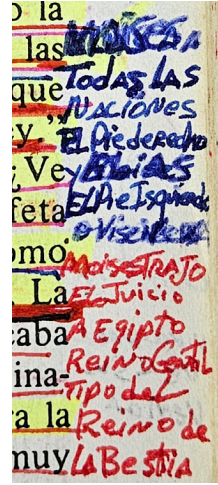 la
las
que
¿Ve
feta
omo
La
caba
ina-
ra la
muy
Todas LAS
NACIONES
El Pie derecho
y Elias
El Pie Isquierdo
Moises TRAJO
El Juicio
A Egipto
Reino Gentil
Tipo del
Reino de
LA Bestia